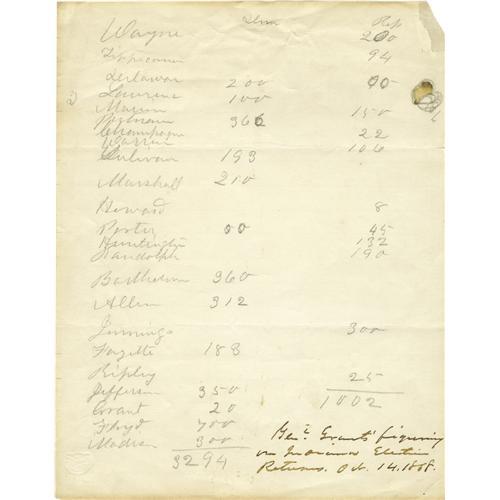 Dem Rep
Wayne 200
Tippicanoe 94
Delaware 200 00
Laurence 100
Marion 366 150
Champagne 22
Warren 106
Sulivan 193
Marshall 210
Howard 8
Porter 00 45
Huntington 132
Randolph 190
Barthelmu 360
Allen 312
Jennings 300
Fayette 183
Ripley 25
Jefferson 350 1002
Grant 20
Floyd 700
Madison 300
3294
Genl. Grants' figuring
on Indiana Election
Returns. Oct. 14. 1868.